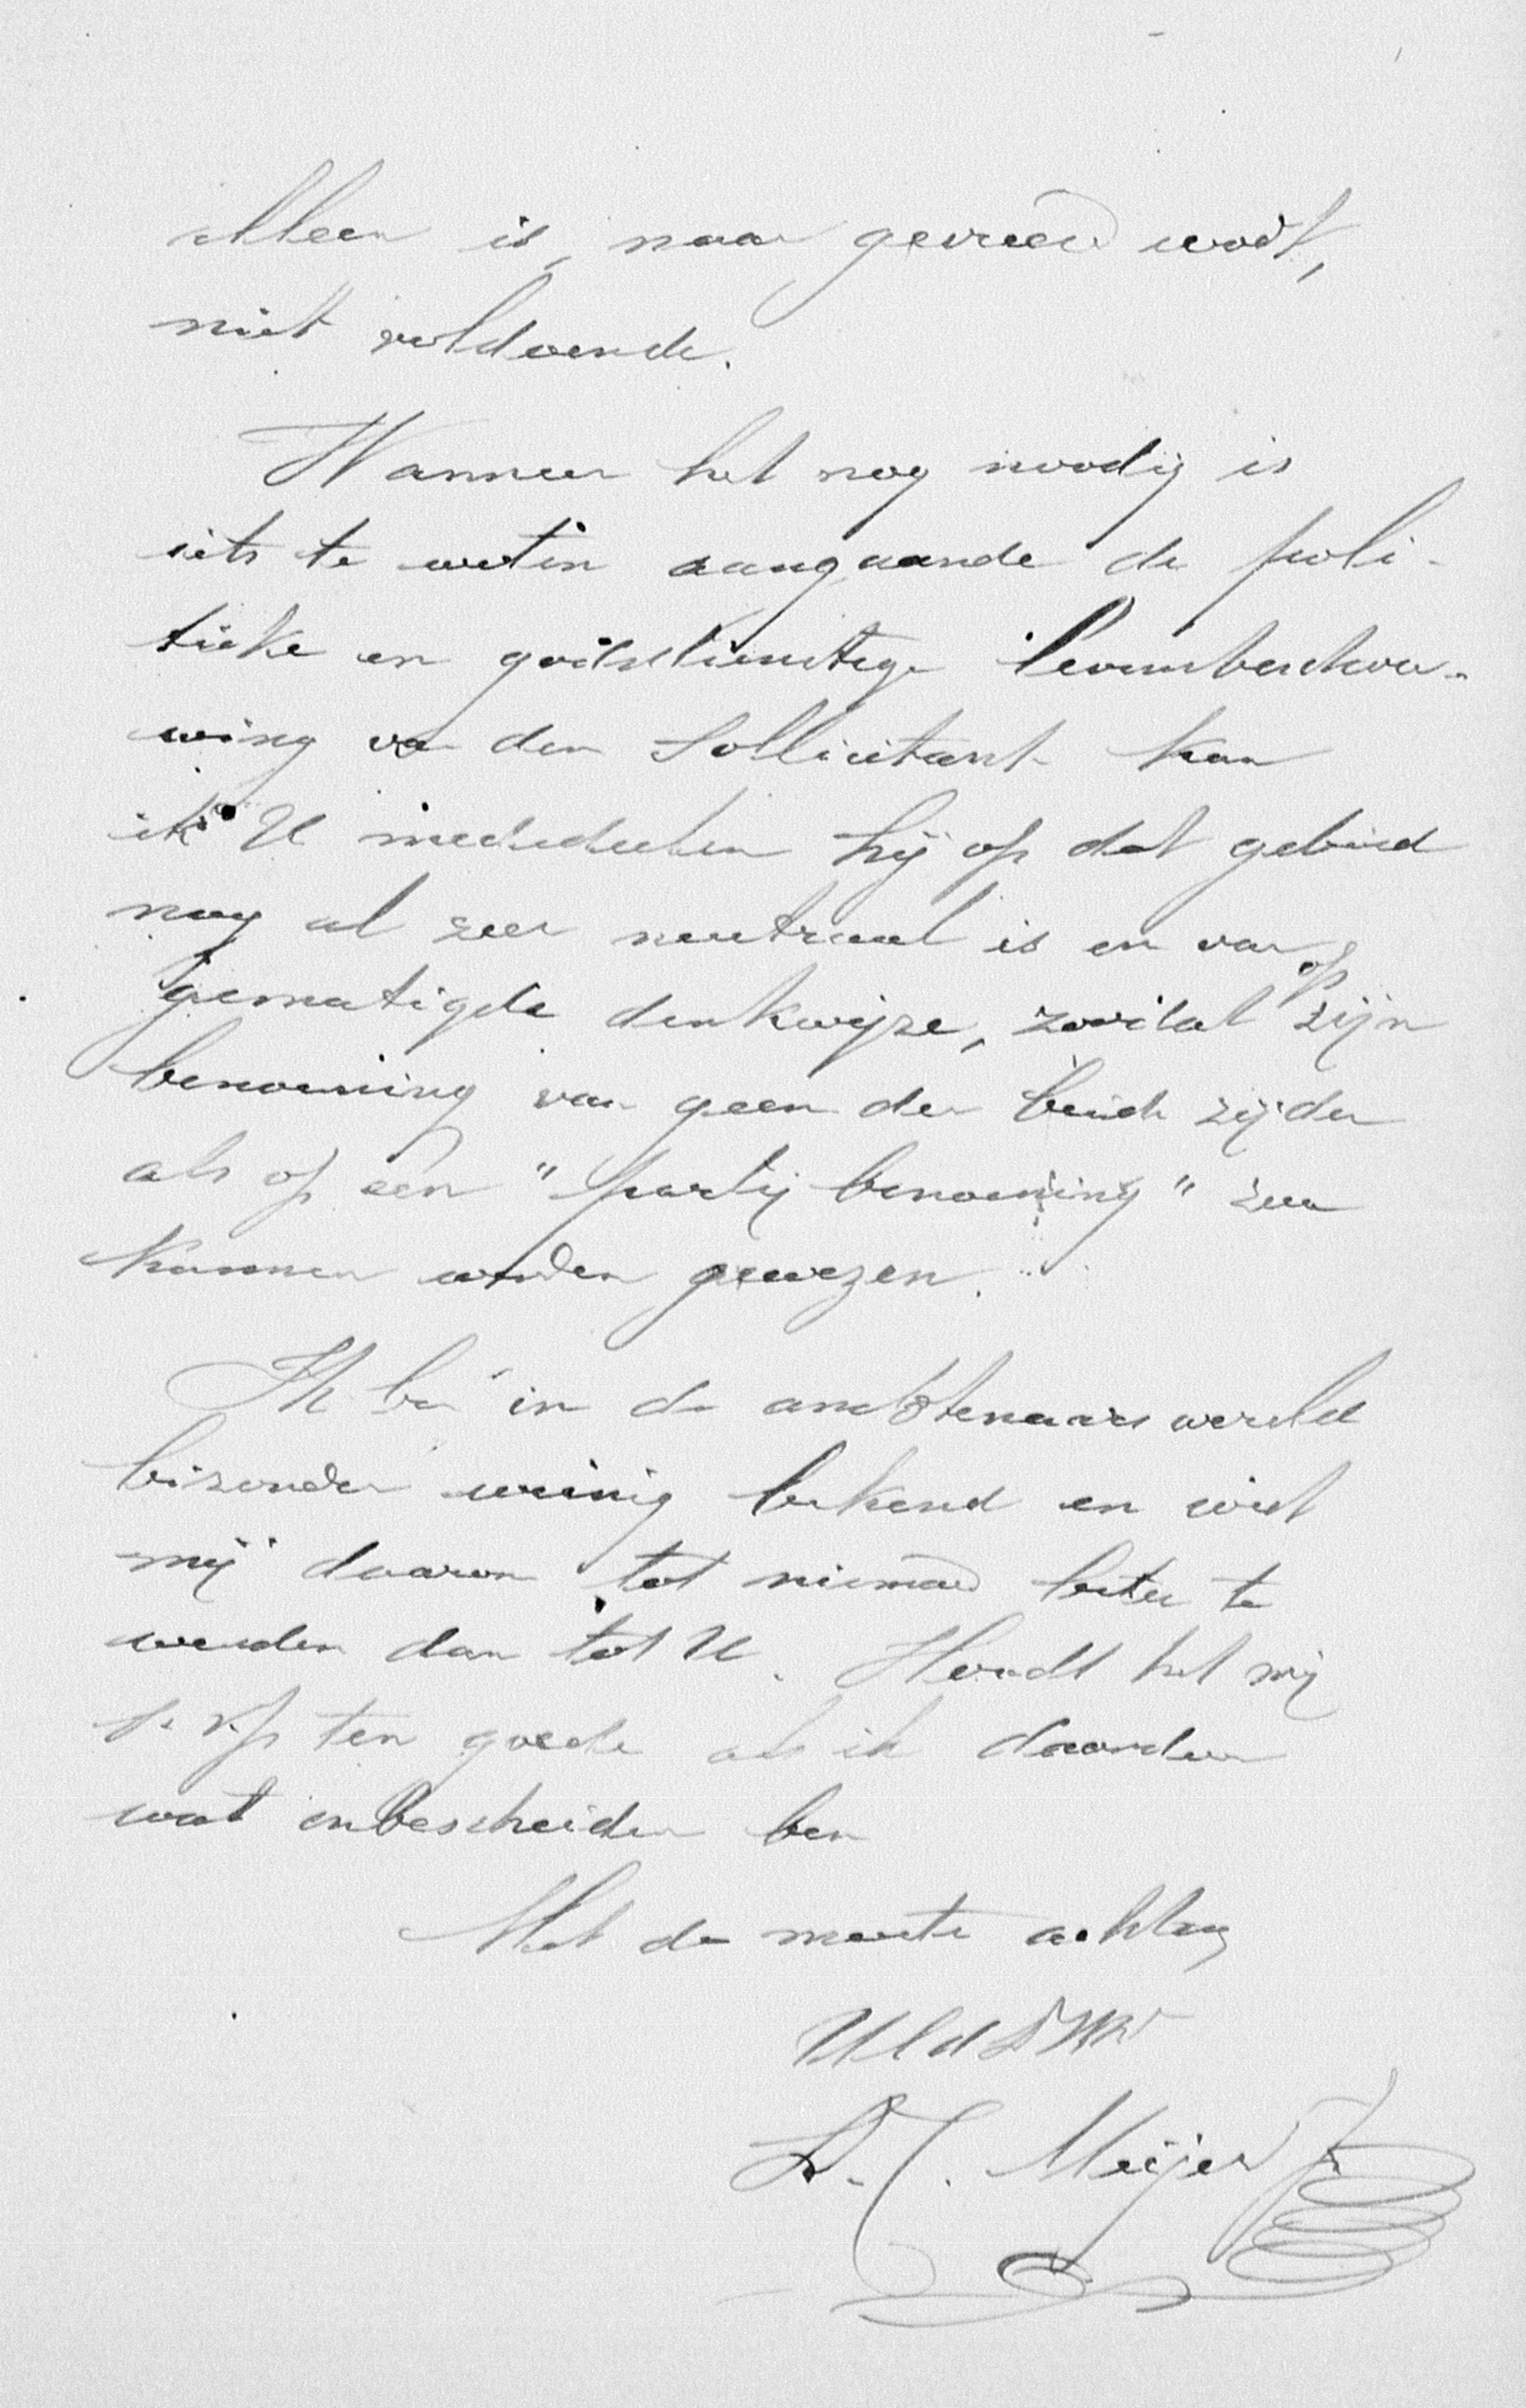 alleen is, naar gevreesd wordt,
niet voldoende.
Wanneer het nog noodig is
iets te weten aangaande de poli-
tieke en godsdienstige levensbeschou-
wing van den sollicitant kan
ik U mededeelen hij op dat gebied
nog al zeer neutraal is en van
gematigde denkwijze, zoodat op zijn
benoeming van geen der beide zijden
als op een "partij benoeming" zou
kunnen worden gewezen.
Ik ben in de ambtenaarswereld
bizonder weinig bekend en wist
mij daarom tot niemand beter te
wenden dan tot U. Houdt het mij
s.v.p ten goede als ik daardoor
wat onbescheiden ben
Met de meeste achting
UEd DWDr
D. C. Meijer Jr